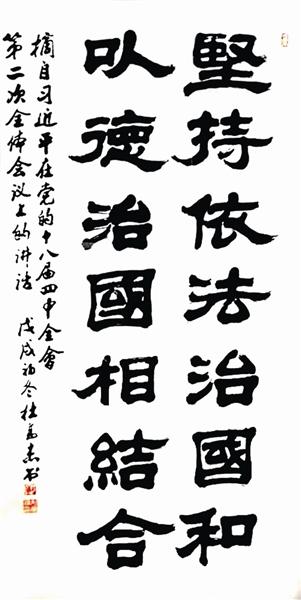 堅持依法治國和
以德治國相結合
摘自习近平在党的十八届四中全會
第二次全体会议上的讲话
戊戌初冬杜
书